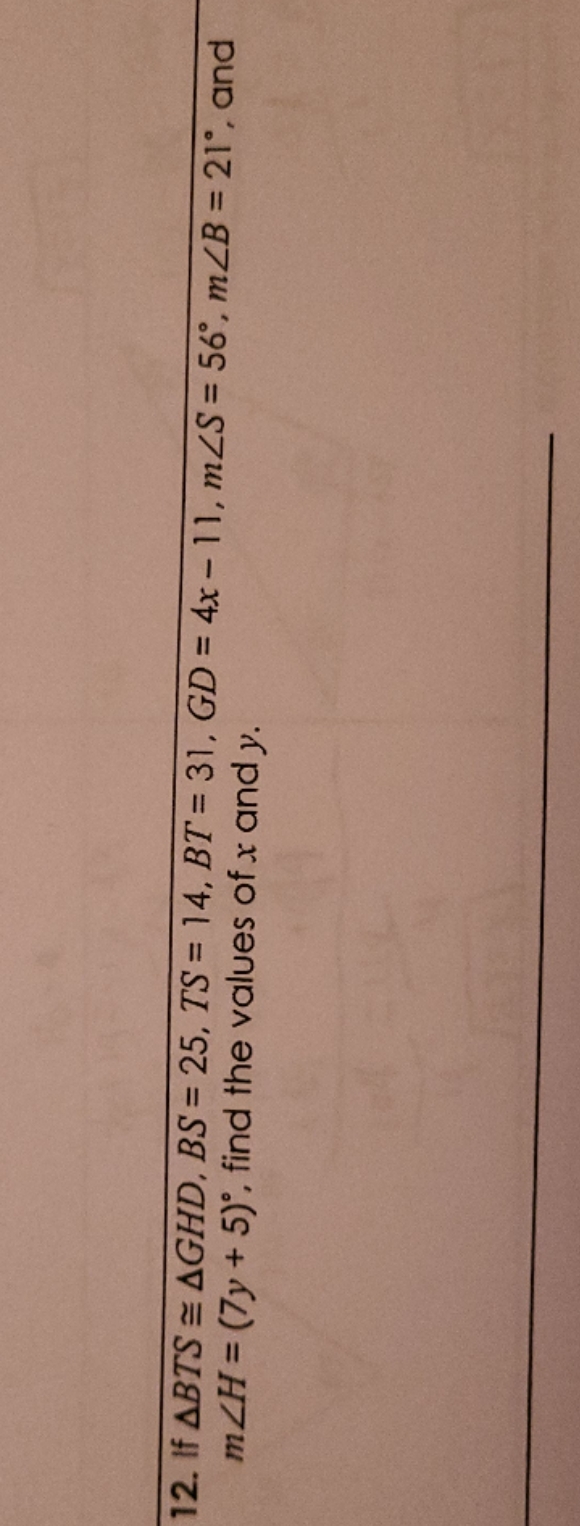 12. If ΔBTS ≅ ΔGHD, BS = 25, TS = 14, BT = 31, GD = 4x – 11, m∠S = 56°, m∠B = 21°, and
m∠H = (7y + 5)°, find the values of x and y.